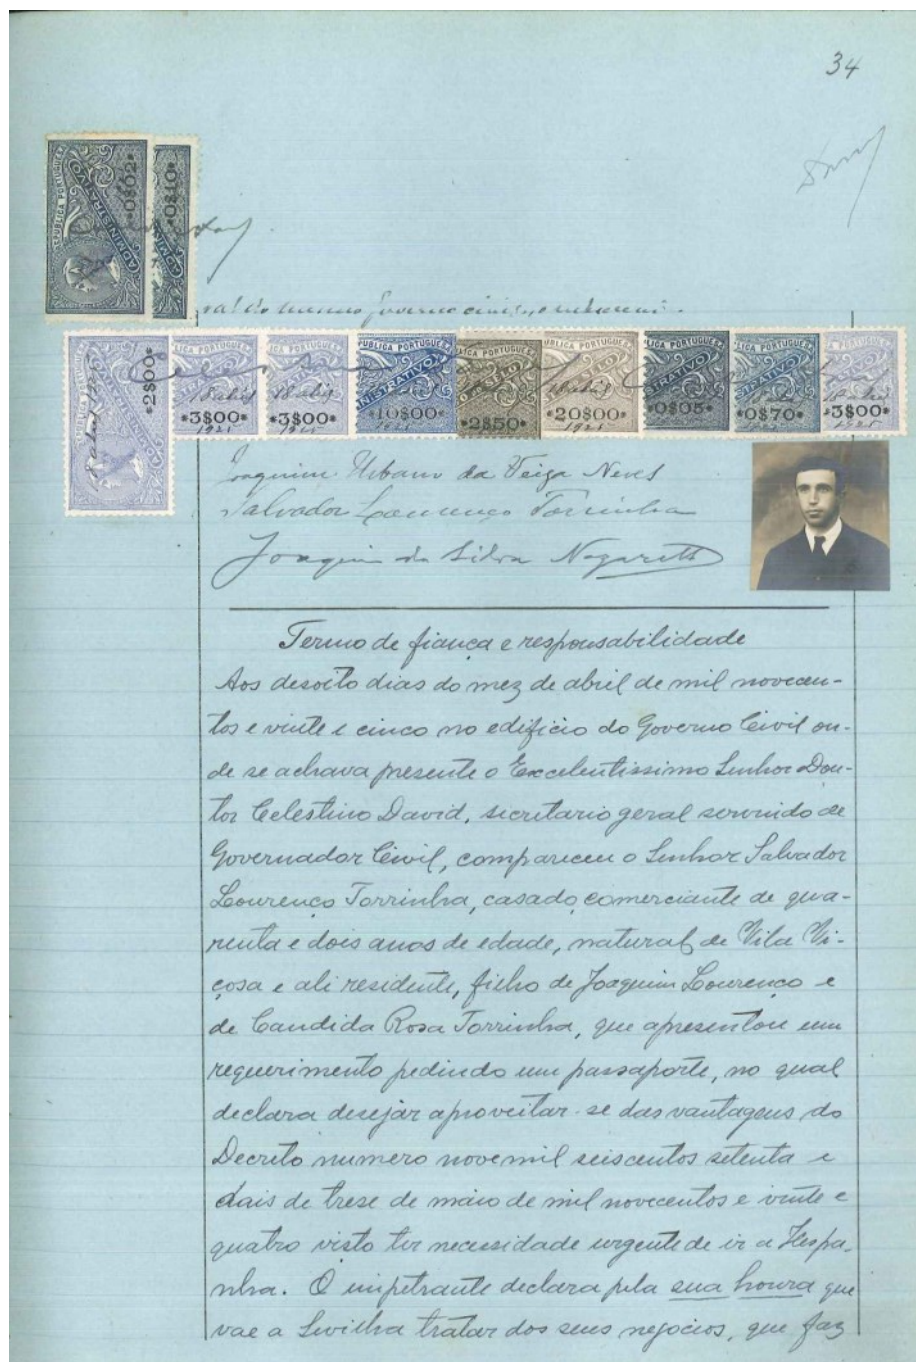 34
REPUBLICA PORTUGUESA
ADMINISTRATIVO
*0$02*
*0$10*
do mesmo governo civil,
*2$00*
*3$00*
*3$00*
*10$00*
*2$50*
*20$00*
*0$05*
*0$70*
*3$00*
18 abril
1925
Joaquim Urbano da Veiga Neves
Salvador Lourenço Torrinha
Joaquim da Silva Nazareth
Termo de fiança e responsabilidade
Aos desoito dias do mez de abril de mil novecen-
tos e vinte e cinco no edificio do Governo Civil on-
de se achava presente o Excelentissimo Senhor Dou-
tor Celestino David, secretario geral servindo de
Governador Civil, compareceu o Senhor Salvador
Lourenço Torrinha, casado, comerciante de qua-
renta e dois anos de edade, natural de Vila Vi-
çosa e ali residente, filho de Joaquim Lourenço e
de Candida Rosa Torrinha, que apresentou um
requerimento pedindo um passaporte, no qual
declara desejar aproveitar-se das vantagens do
Decreto numero nove mil seiscentos setenta e
dais de trese de maio de mil novecentos e vinte e
quatro visto ter necessidade urgente de ir a Hespa-
nha. O impetrante declara pela sua honra que
vae a Sevilha tratar dos seus negocios, que faz